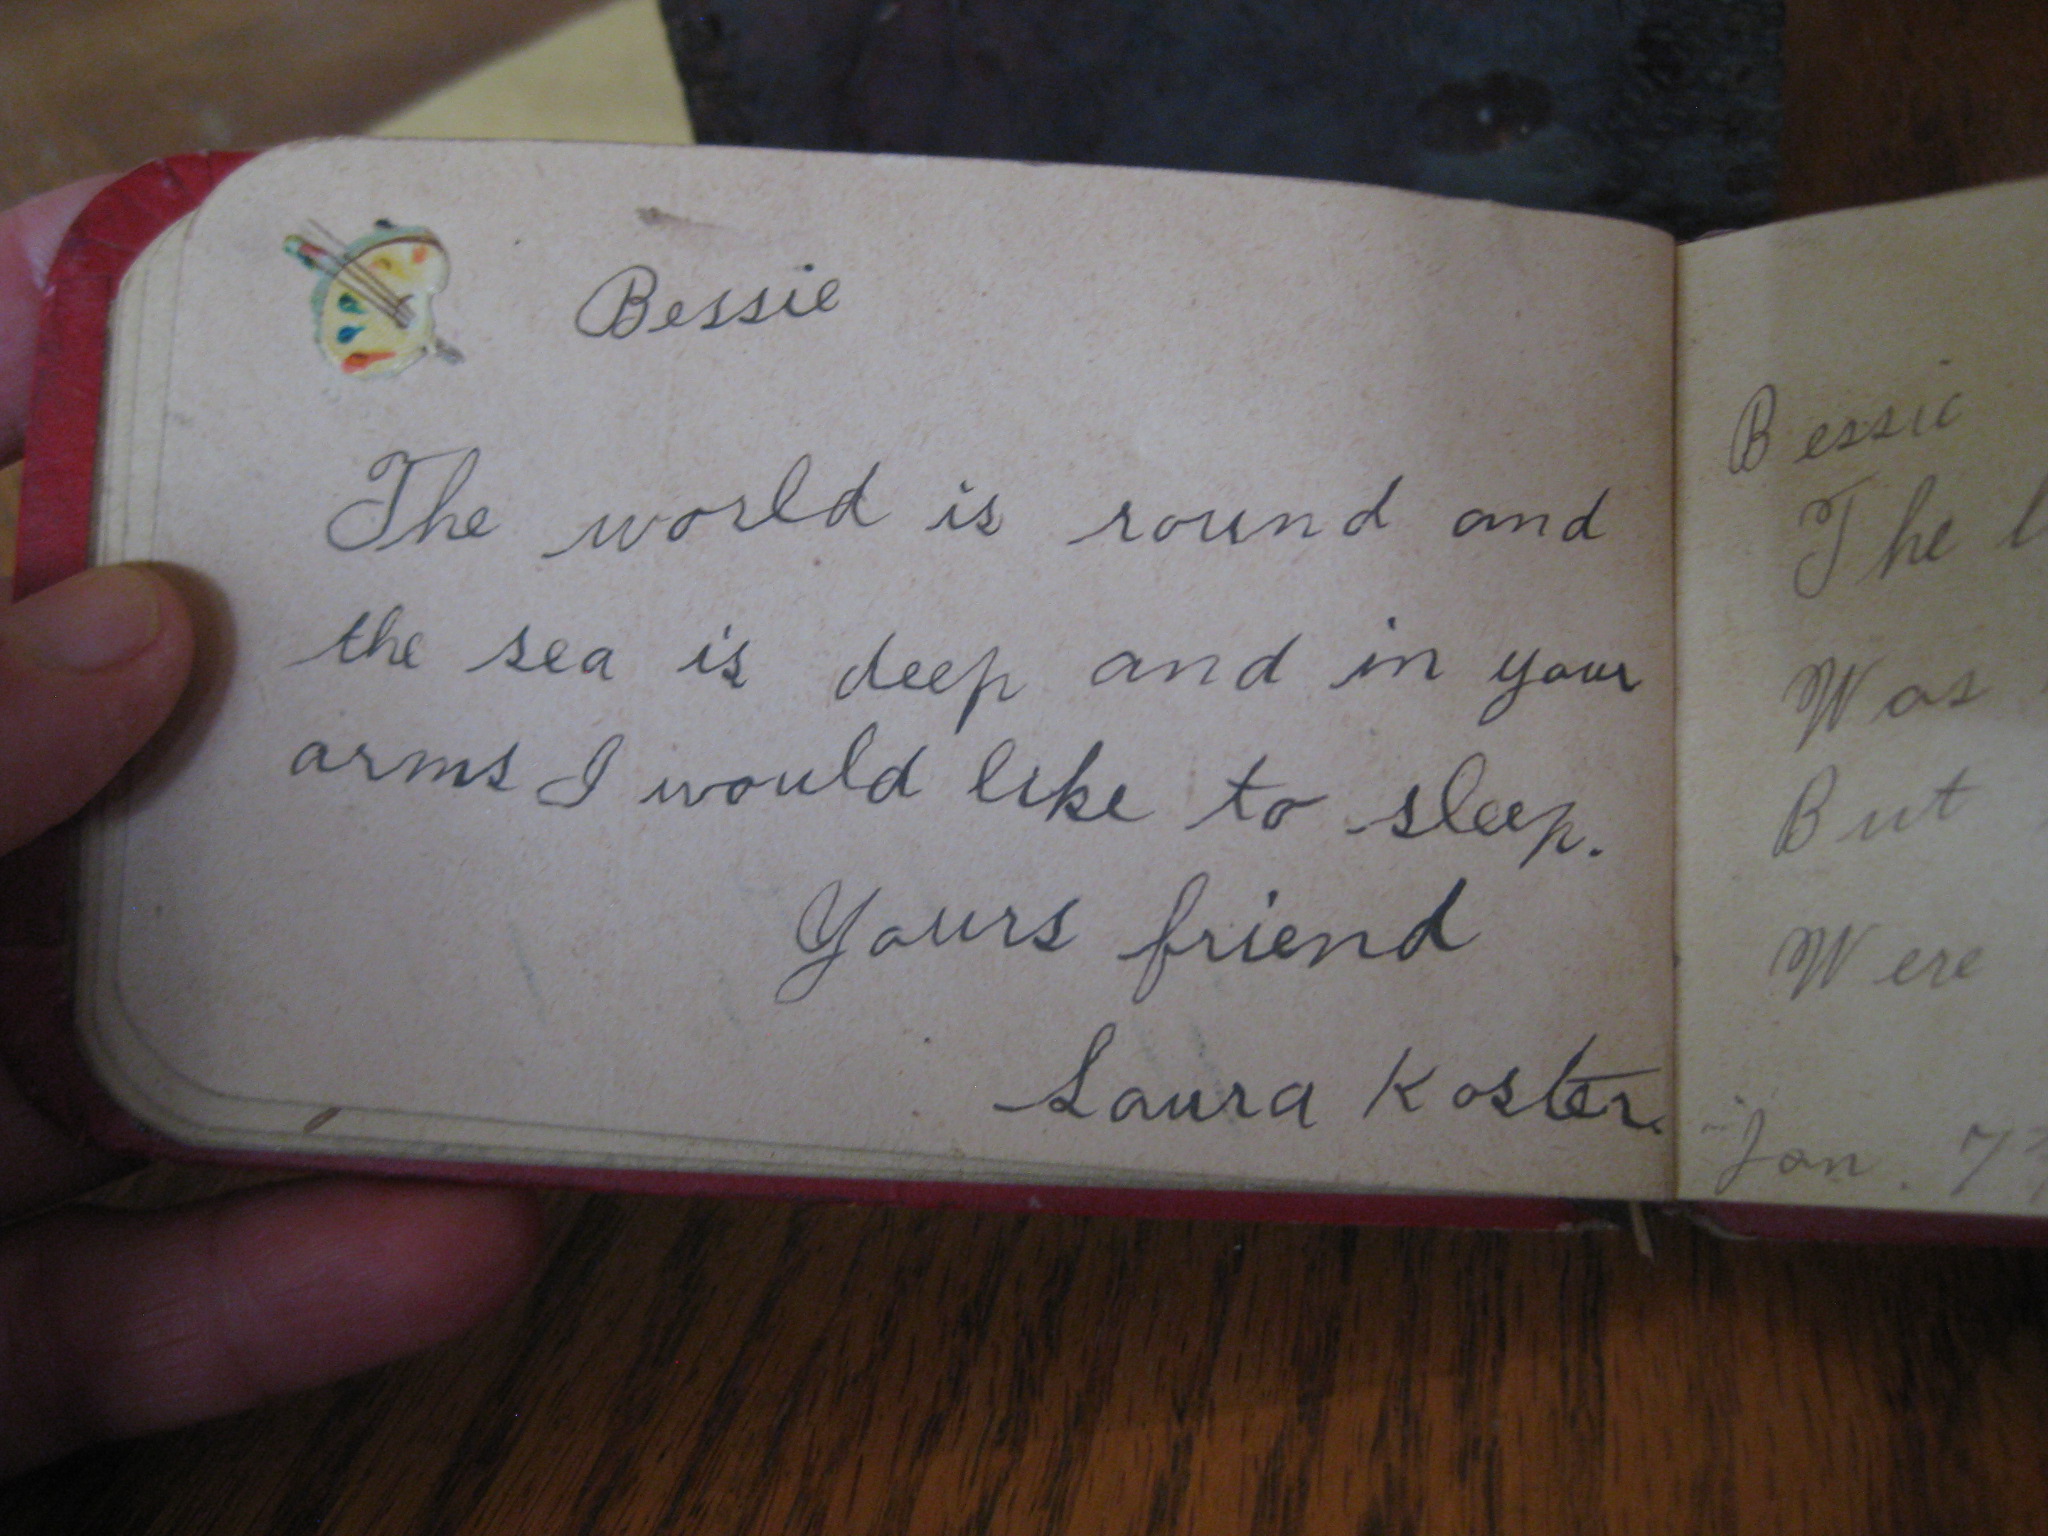 Bessie
The world is round and
the sea is deep and in your
arms I would like to sleep.
Yours friend
Laura Koster.
Bessie
The
Was
But
Were
Jan.